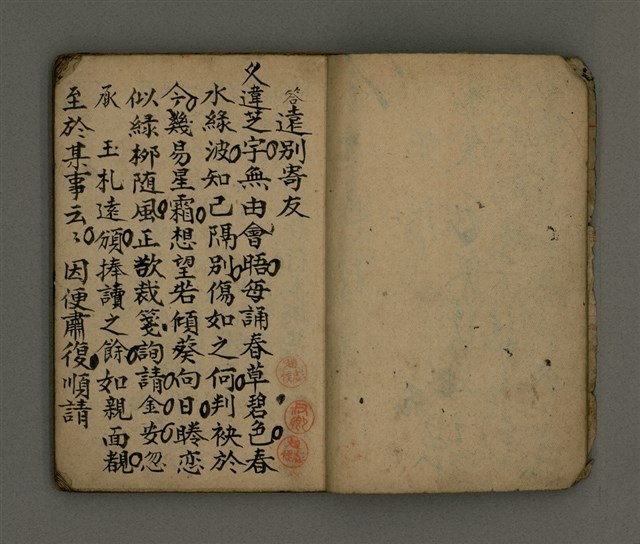 答遠別寄友
久違芝字無由會晤每誦春草碧色春
水綠波知己隔別傷如之何判袂於
今幾易星霜想望若傾葵向日睠恋
似綠柳随風正欲裁箋詢請金安忽
承 玉札遠頒捧讀之餘如親面覩
至於某事云々因便肅復順請